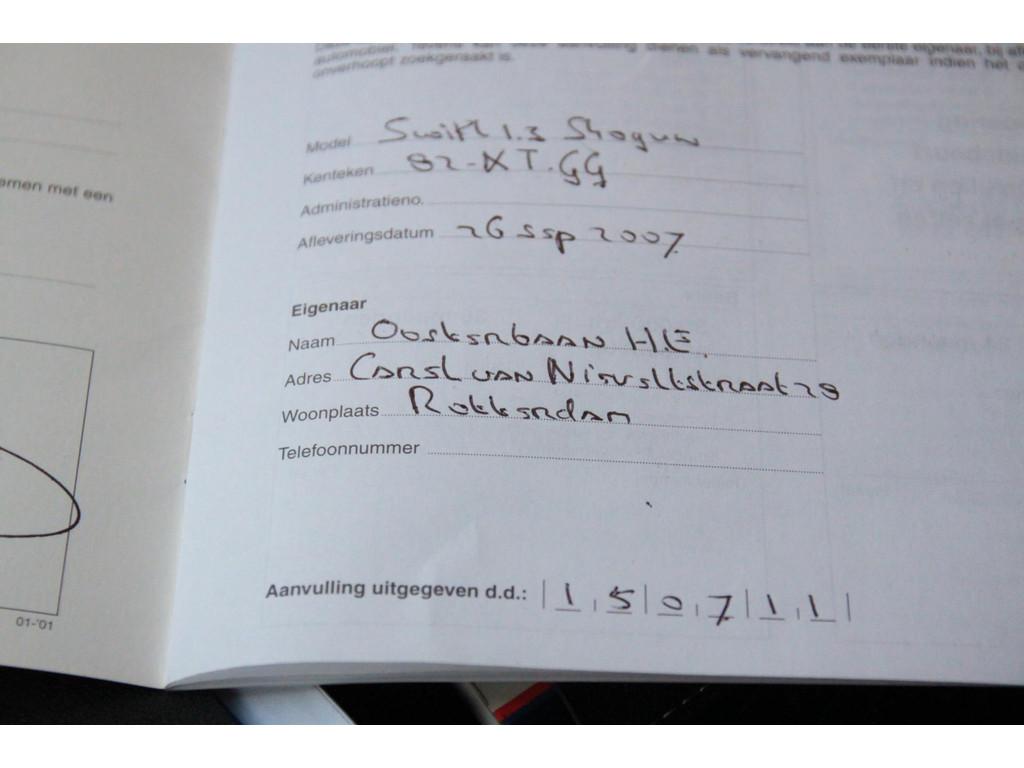 automobiel.
onverhoopt zoekgeraakt is.
als vervangend exemplaar indien het
emen met een
Model Swift 1.3 Shogun
Kenteken 82-XT.GG
Administratieno.
Afleveringsdatum 26 sep 2007
Eigenaar
Naam Oosterbaan H.E.
Adres Carel van Nieveltstraat 28
Woonplaats Rotterdam
Telefoonnummer
Aanvulling uitgegeven d.d.: 1 5 0 7 1 1
01-'01